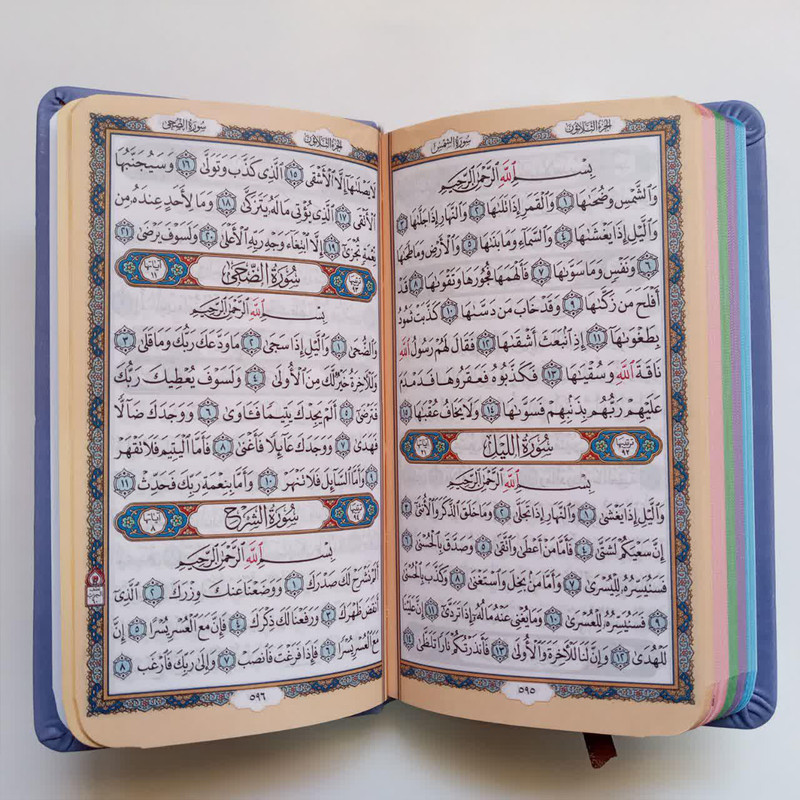 سورة الشمس الجزء الثلاثون
بسم الله الرحمن الرحيم
والشمس وضحىها ١ والقمر إذا تلىها ٢ والنهار إذا جلىها ٣
واليل إذا يغشىها ٤ والسماء وما بنىها ٥ والأرض وما طحىها
٦ ونفس وما سوىها ٧ فألهمها فجورها وتقوىها ٨ قد
أفلح من زكىها ٩ وقد خاب من دسىها ١٠ كذبت ثمود
بطغوىها ١١ إذ انبعث أشقىها ١٢ فقال لهم رسول الله
ناقة الله وسقيىها ١٣ فكذبوه فعقروها فدمدم
عليهم ربهم بذنبهم فسوىها ١٤ ولا يخاف عقبىها ١٥
ترتيبها ٩٢ سورة الليل آياتها ٢١
بسم الله الرحمن الرحيم
واليل إذا يغشى ١ والنهار إذا تجلى ٢ وما خلق الذكر والأنثى ٣
إن سعيكم لشتى ٤ فأما من أعطى واتقى ٥ وصدق بالحسنى ٦
فسنيسره لليسرى ٧ وأما من بخل واستغنى ٨ وكذب بالحسنى
٩ فسنيسره للعسرى ١٠ وما يغني عنه ماله إذا تردى ١١ إن علينا
للهدى ١٢ وإن لنا للآخرة والأولى ١٣ فأنذرتكم نارا تلظى ١٤
٥٩٥
سورة الضحى الجزء الثلاثون
لا يصلىها إلا الأشقى ١٥ الذي كذب وتولى ١٦ وسيجنبها
الأتقى ١٧ الذي يؤتي ماله يتزكى ١٨ وما لأحد عنده من
نعمة تجزى ١٩ إلا ابتغاء وجه ربه الأعلى ٢٠ ولسوف يرضى ٢١
ترتيبها ٩٣ سورة الضحى آياتها ١١
بسم الله الرحمن الرحيم
والضحى ١ واليل إذا سجى ٢ ما ودعك ربك وما قلى ٣
وللآخرة خير لك من الأولى ٤ ولسوف يعطيك ربك
فترضى ٥ ألم يجدك يتيما فـاوى ٦ ووجدك ضالا
فهدى ٧ ووجدك عائلا فأغنى ٨ فأما اليتيم فلا تقهر
٩ وأما السائل فلا تنهر ١٠ وأما بنعمة ربك فحدث ١١
ترتيبها ٩٤ سورة الشرح آياتها ٨
بسم الله الرحمن الرحيم
ألم نشرح لك صدرك ١ ووضعنا عنك وزرك ٢ الذي
أنقض ظهرك ٣ ورفعنا لك ذكرك ٤ فإن مع العسر يسرا ٥ إن
مع العسر يسرا ٦ فإذا فرغت فانصب ٧ وإلى ربك فارغب ٨
٥٩٦